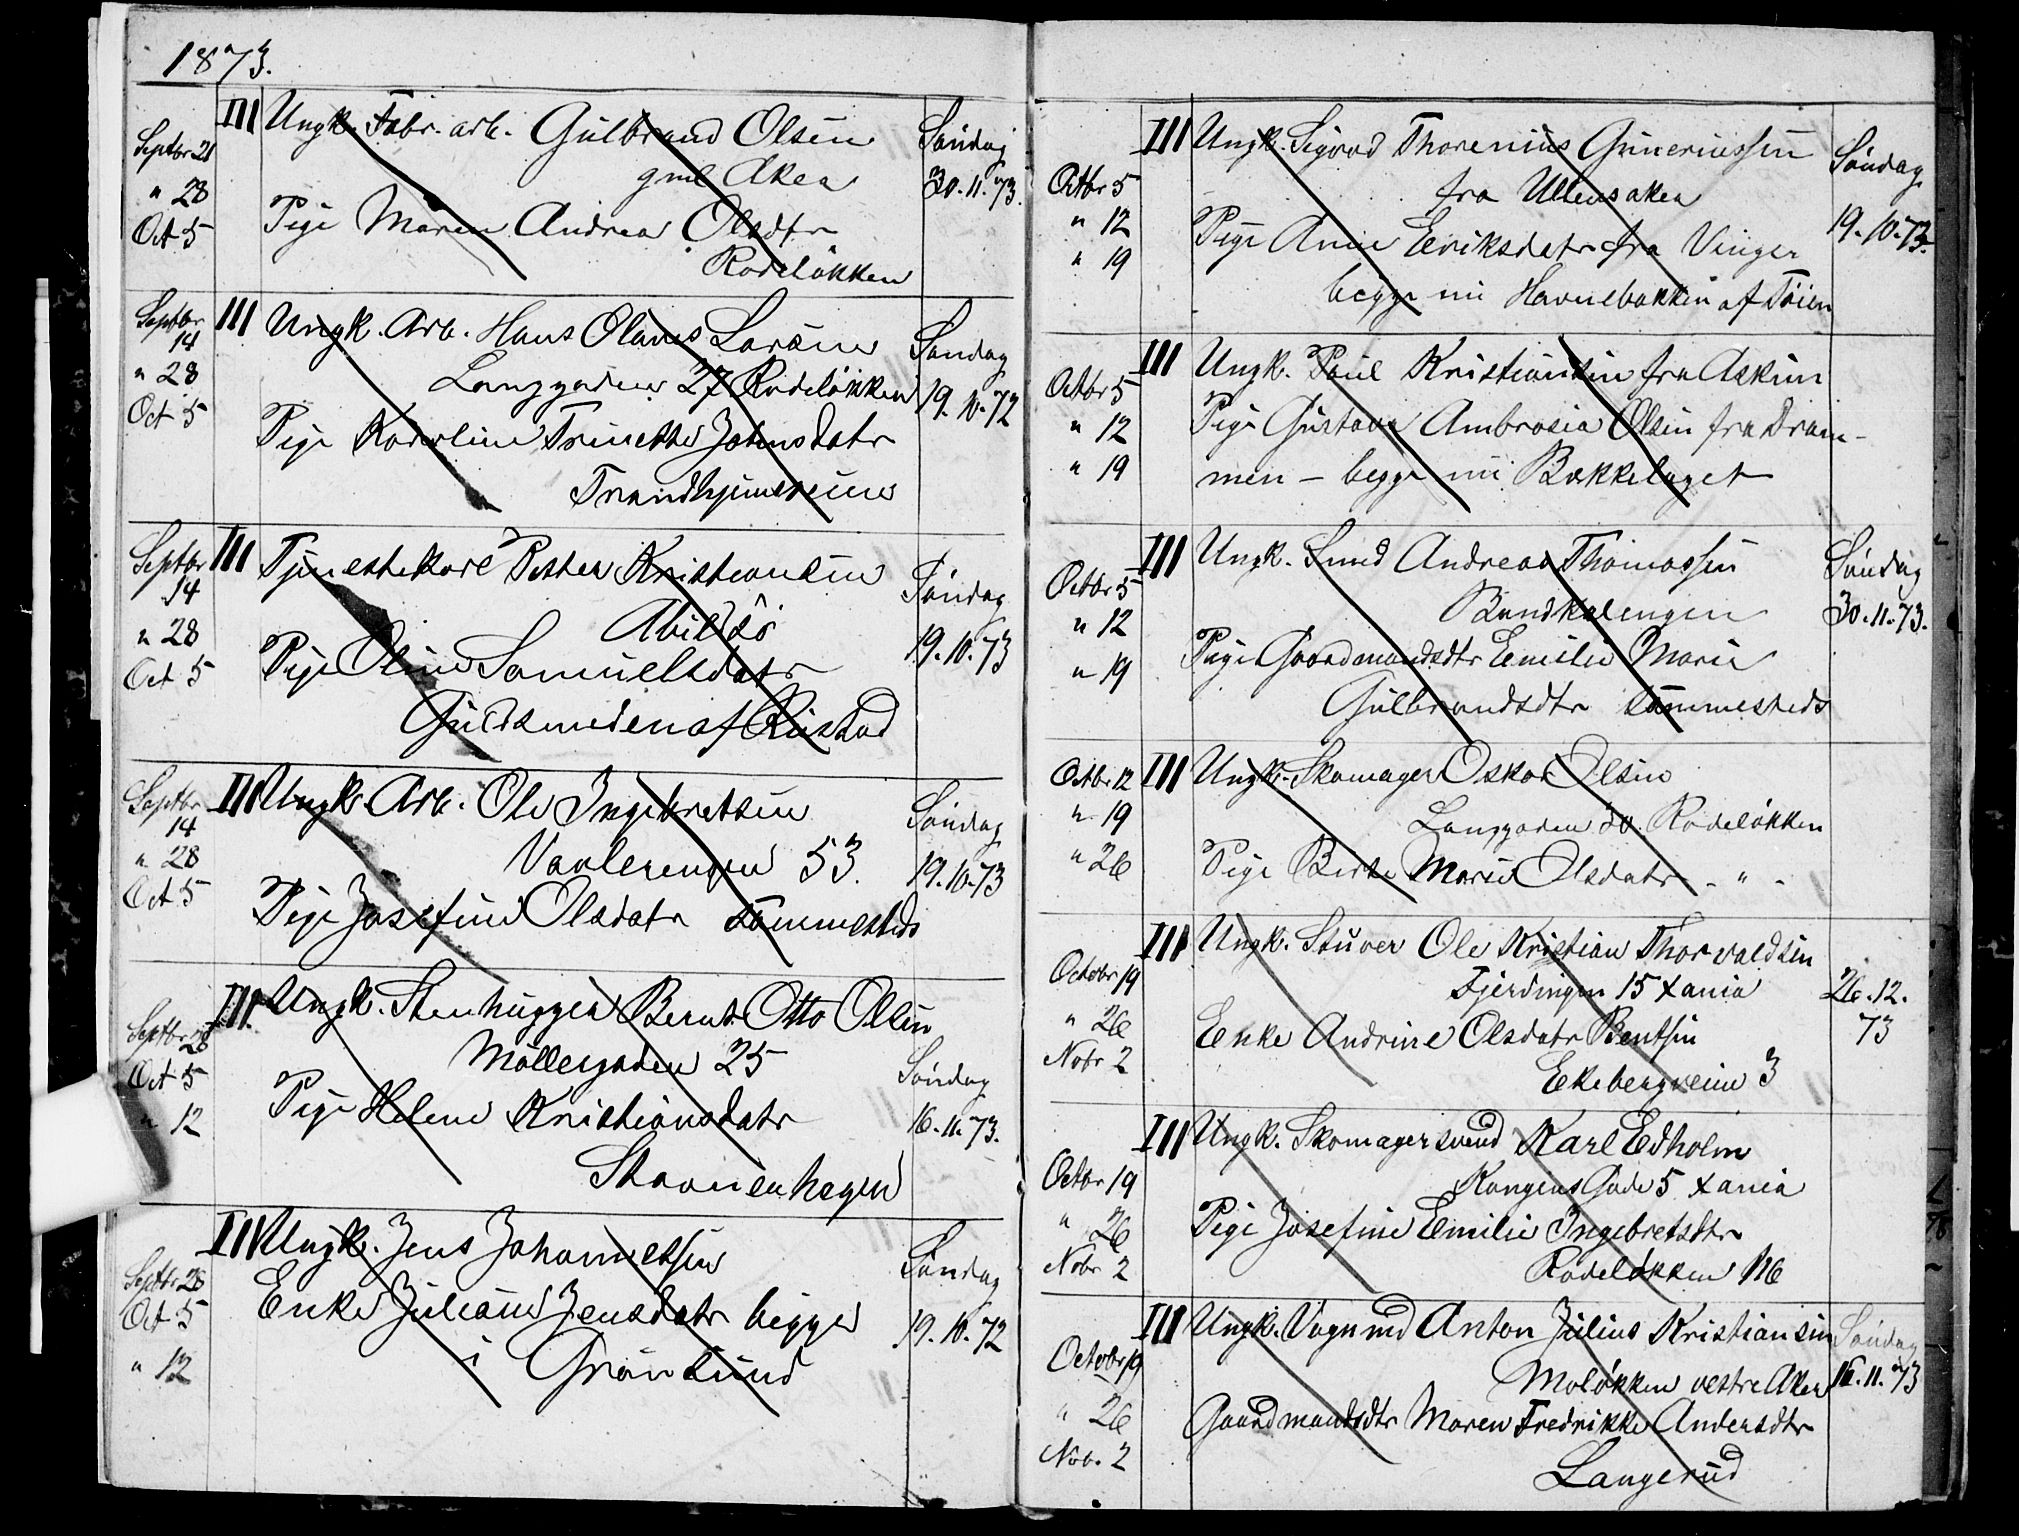 1873.
III Ungk. Fabr. arb. Gulbrand Olsen Søndag
Septbr 21 gml Aker 30.11.73.
" 28 Pige Maren Andrea Olsdtr
Oct 5 Rodeløkken
Septbr III Ungk. Arb. Hans Olaves Larsen Søndag
14 Langgaden 27 Rodeløkken 19.10.72
" 28
Oct 5 Pige Karoline Trinette Johnsdatr
Trondhjemsveien
Septbr III Tjenestekarl Petter Kristiansen Søndag
14 Abildsø 19.10.73
" 28 Pige Oline Samuelsdatr
Oct 5 Guldsmeden af Rustad
Septbr III Ungk. Arb. Ole Ingebretsen Søndag
14 Vaalerengen 53. 19.10.73
" 28
Oct 5 Pige Josefine Olsdatr sammesteds
III Ungk. Stenhugger Bernt Otto Olsen
Septbr 28 Møllergaden 25 Søndag
Oct 5 Pige Helene Kristiansdatr 16.11.73.
" 12 Stavnenhagen
III Ungk. Jens Johannessen Søndag
Septbr 28 Enke Juliane Jensdatr begge 19.10.72
Oct 5 i Grønsund
" 12
III Ungk. Sigvod Thorenius Guneriussen Søndag
Octbr 5 fra Ullensaker 19.10.73.
" 12 Pige Anne Eriksdatr fra Vinger
" 19 begge nu Havnebakken af Tøien
III Ungk. Paul Kristiansen fra Askim
Octbr 5 Pige Gustava Ambrosia Olsen fra Dram-
" 12
" 19 men - begge nu Bækkelaget
III Ungk. Smed Andreas Thomassen Søndag
Octbr 5 Bundkalengen 30.11.73.
" 12 Pige Gaardmandsdtr Emilie Marie
" 19 Gulbrandsdtr sammesteds
Octbr 12 III Ungk. Skomager Oskar Olsen
" 19 Langgaden 30. Rodeløkken
" 26 Pige Berte Marie Olsdatr - " -
III Ungk. Stuver Ole Kristian Thorvaldsen
Octobr 19 Fjerdingen 15 Xania 26.12.
" 26 Enke Andrine Olsdatr Bentsen 73
Nobr 2 Ekebergveien 3
III Ungk. Skomagersvend Karl Edholm
Octbr 19 Kongens Gade 5 Xania
" 26 Pige Josefine Emilie Ingebretsdtr
Nobr 2 Rodeløkken 116
III Ungk. Vognmd Anton Julius Kristiansen Søndag
Octobr 19 Moløkken vestre Aker 16.11.73
" 26 Gaardmandsdtr Maren Fredrikke Andersdtr
Nob. 2 Langerud